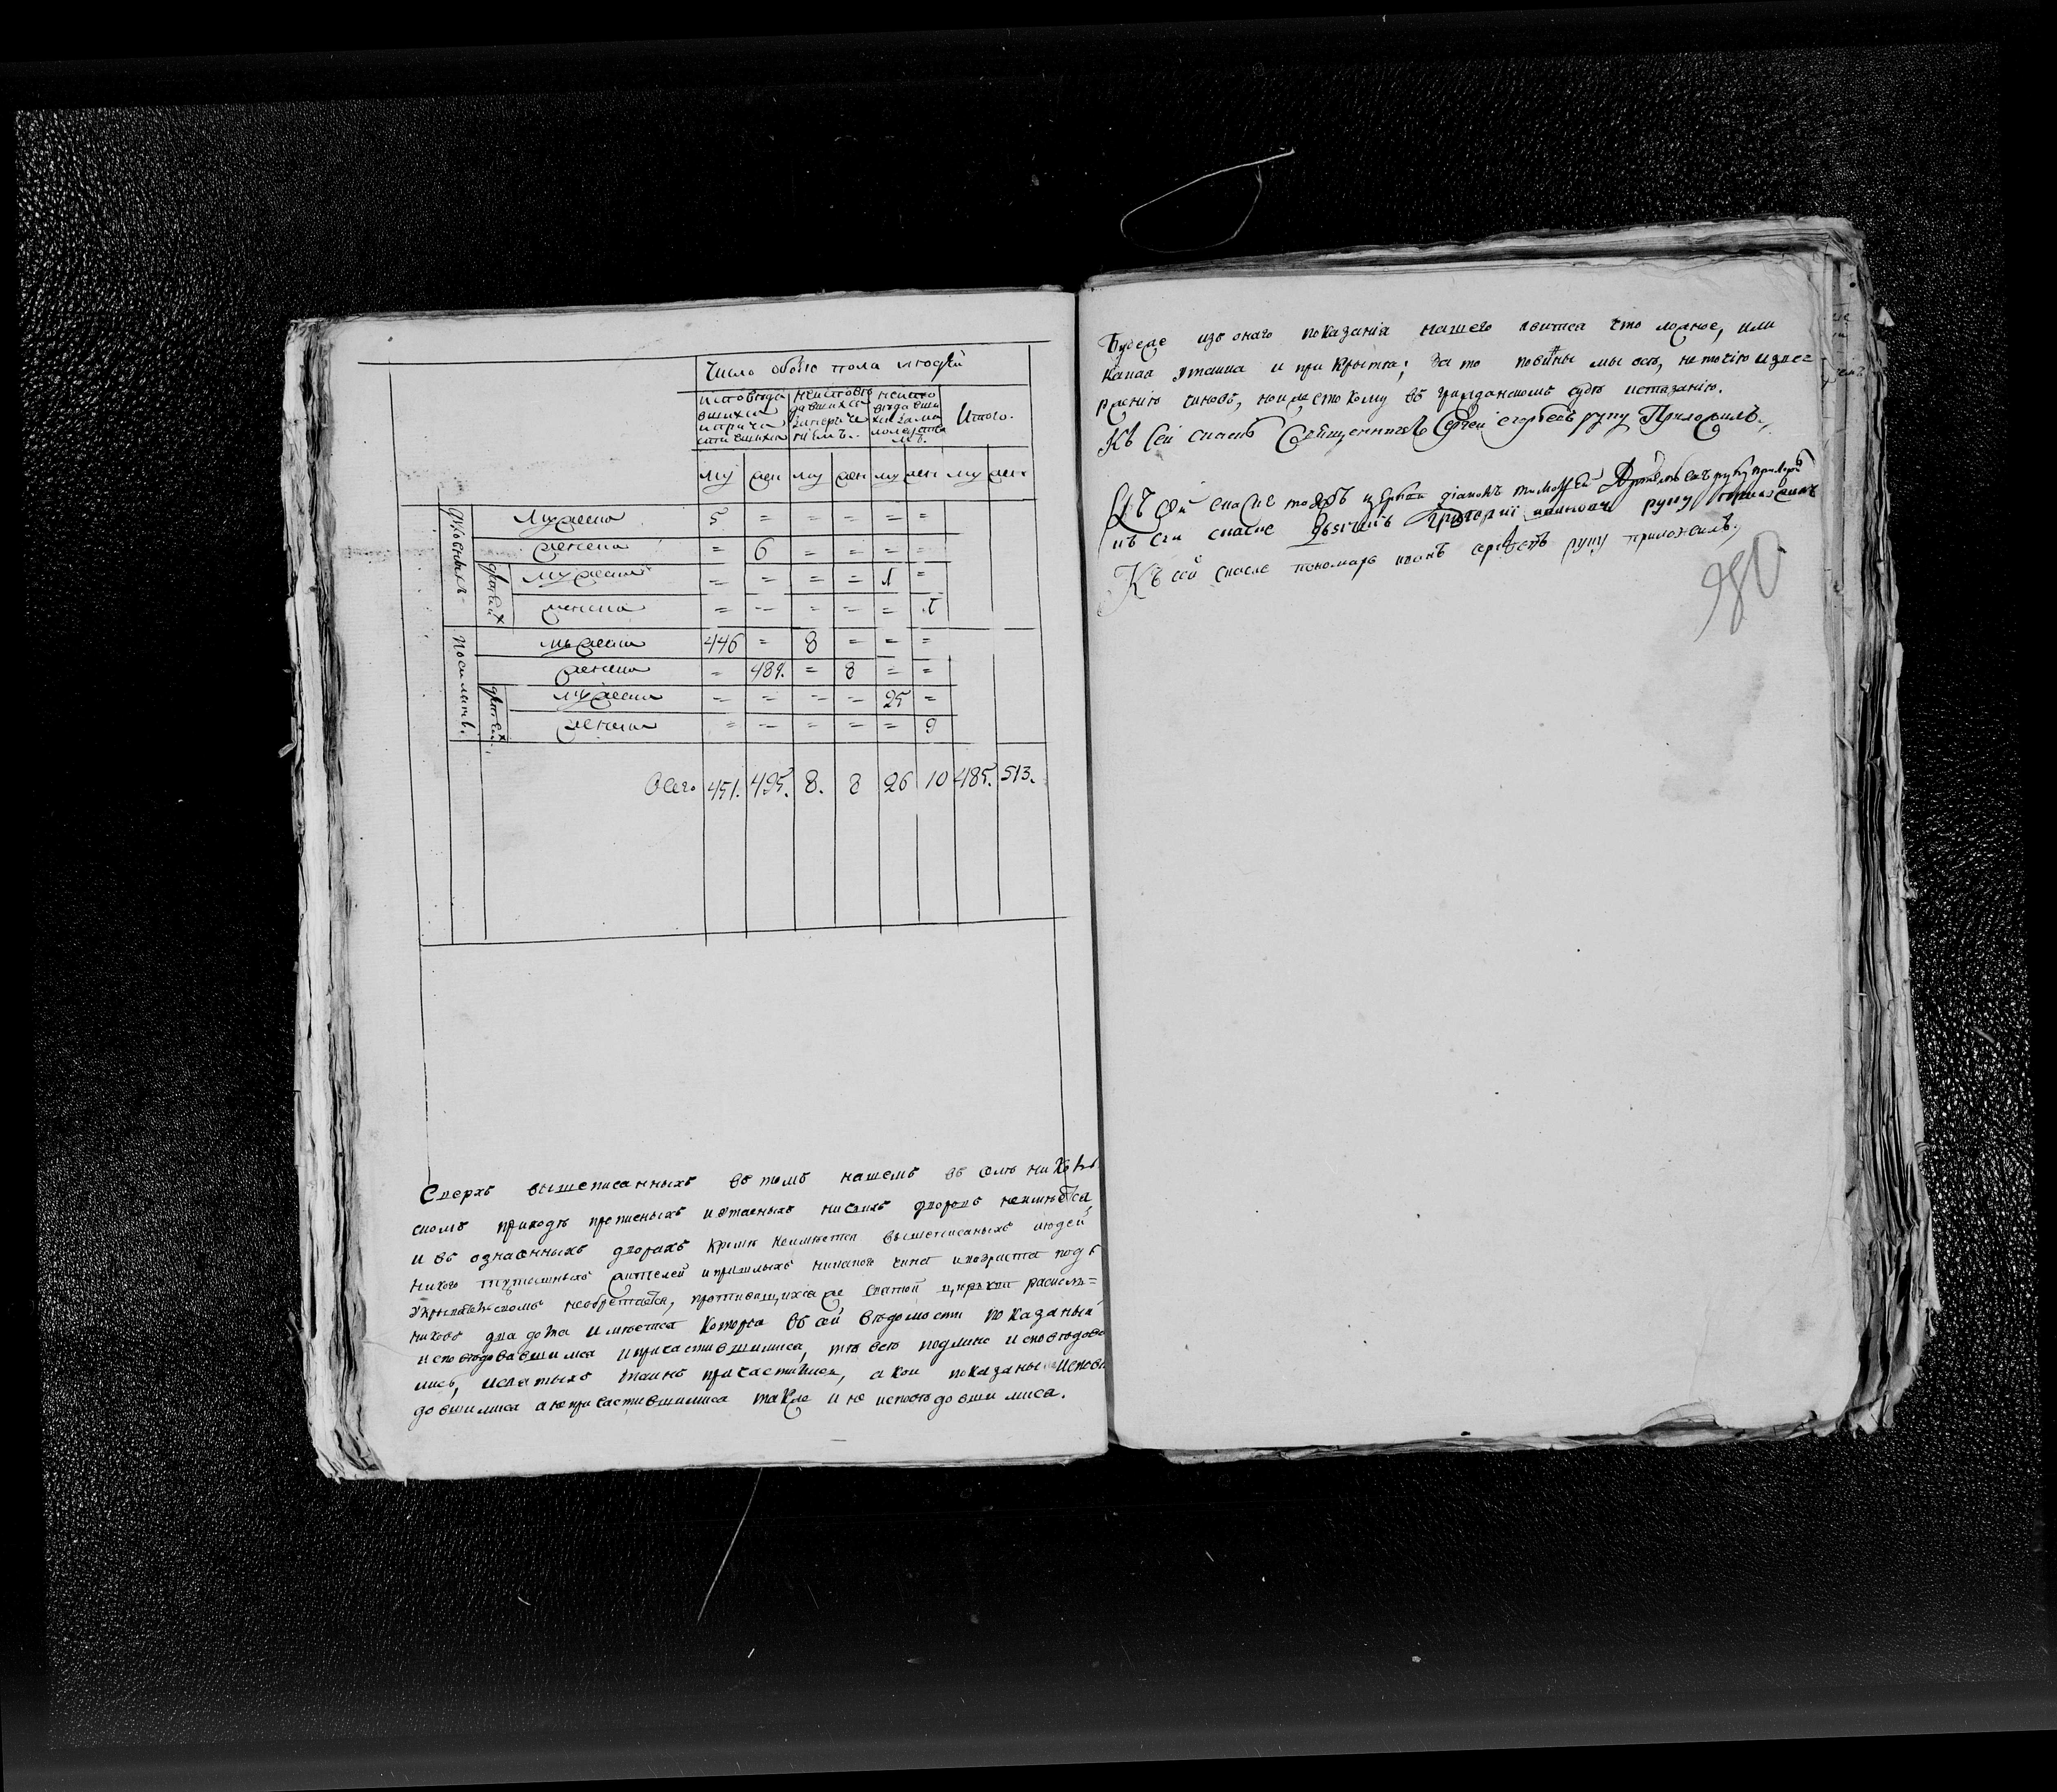 Число обоего пола людей
исповѣдавшихся и причастившихся
неисповѣдавшихся
неисповѣдавшихся за малолѣтствомъ
Итого.
му жен му жен му жен му жен
Духовныхъ
Мужеска 5 = = = = =
женска = 6 = = = =
дѣтей
Мужеска = = = = 1 =
женска = = = = = 1
Посилянъ
мужеска 446 = 8 = = =
женска = 489. = 8 = =
дѣтей
мужеска = = = = 25 =
женска = = = = = 9
Всего 451. 495. 8. 8 26 10 485. 513.
Сверхъ вышеписанныхъ въ томъ нашемъ въ
приходѣ прописныхъ и утаеныхъ дворовъ неимѣется
и въ означенныхъ дворахъ кромѣ вышеписаныхъ людей
никого жителей и пришлыхъ никакого чина и возраста подъ
необретается, противящихся же святой церкви расколь=
никовъ два дома имѣется которыя въ сей вѣдомости показаны
исповѣдовавшимися и причастившимися, тѣ всѣ подлинно исповѣдова
лись, и святыхъ таинъ причастились, а кои показаны
довшимися а не причастившимися также и не исповѣдовшимися.
Будеже изъ онаго показанія нашего явится что ложное, или
какая утайка и прикрытка; За то повинны мы есть, не точію извер=
жению чиновъ, но и жестокому въ гражданскомъ судѣ истязанію.
Къ Сей сказкѣ Священникъ Сергей егорьевъ руку Приложилъ.
Къ сей скаске тояжъ церкви діаконъ тимофей руку приложилъ
къ сеи скаске Дьячекъ Григорий руку приложилъ
Къ сей скаске пономарь иванъ сергѣевъ руку приложилъ.
980